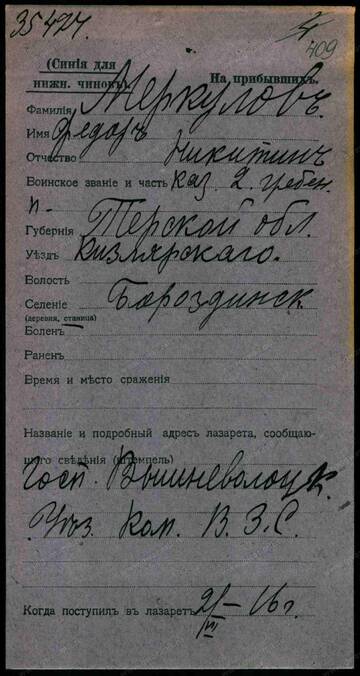 35424.
409
(Синія для
нижн. чиновъ).
На прибывшихъ.
Фамилія Меркуловъ
Имя Федоръ
Отчество Никитинъ
Воинское званіе и часть Каз. 2. гребен.
п-
Губернія Терской обл.
Уѣздъ Кизлярскаго.
Волость
Селеніе Бороздинск
(деревня, станица)
Боленъ
Раненъ
Время и мѣсто сраженія
Названіе и подробный адресъ лазарета, сообщаю-
щаго свѣдѣнія (штемпель)
Госп. Вышневолоцк.
Уѣз. Ком. В. З. С.
Когда поступилъ въ лазаретъ 21/VI – 16 г.